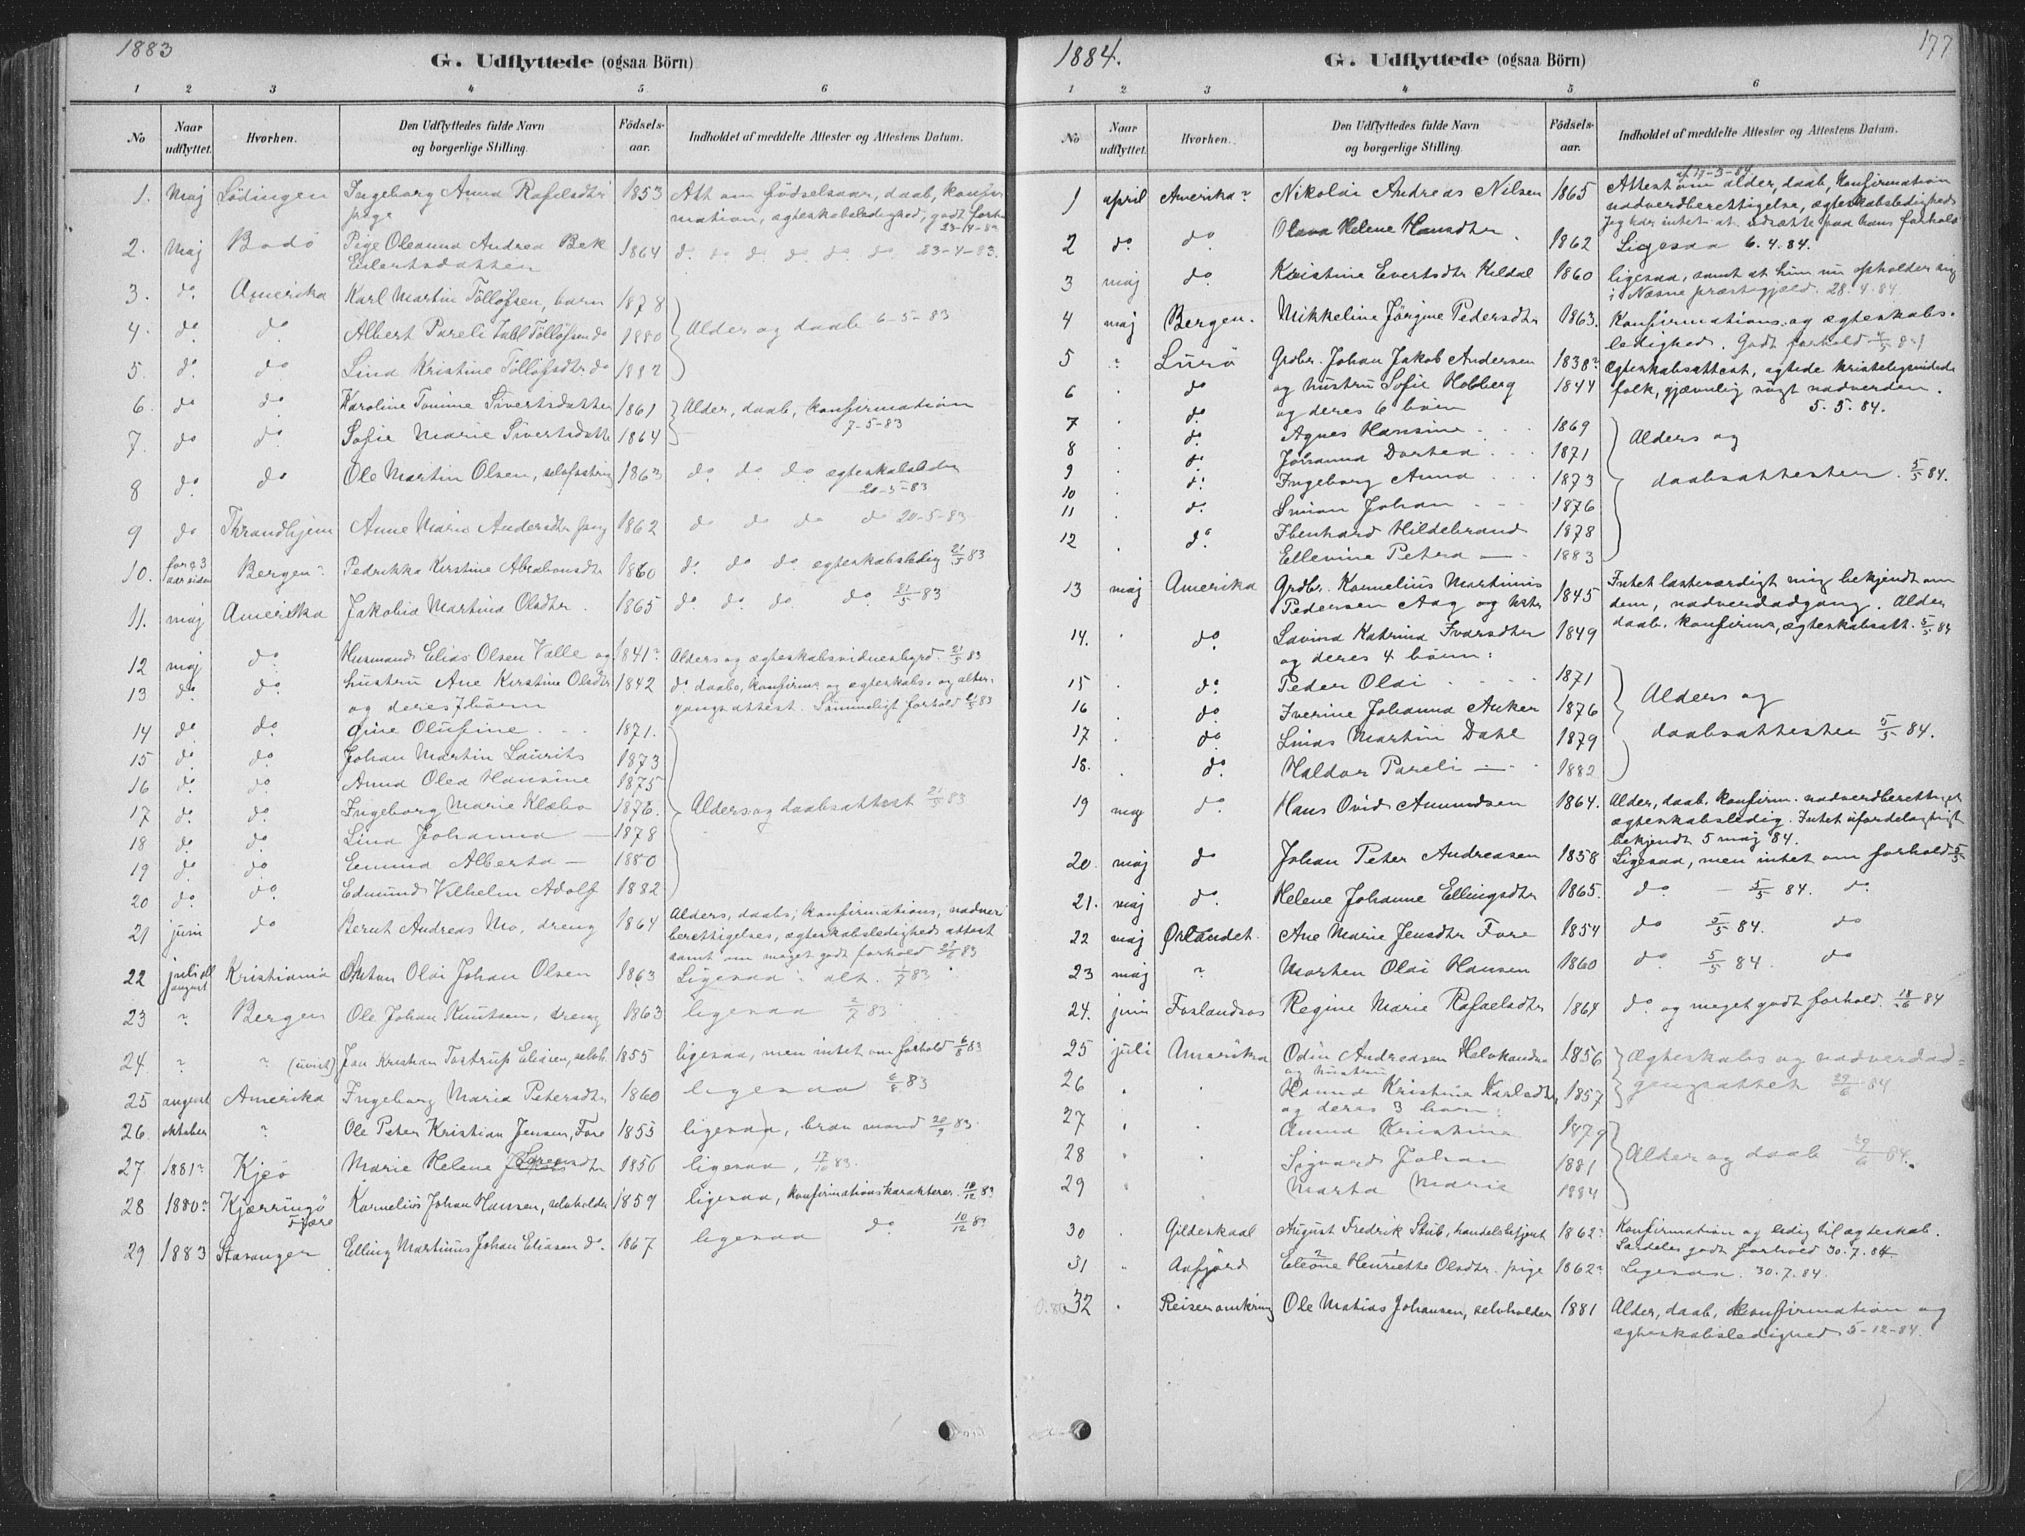 1883
G. Udflyttede (ogsaa Börn)
1 2 3 4 5 6
No Naar udflyttet. Hvorhen. Den Udflyttedes fulde Navn og borgerlige Stilling. Födsels-aar. Indholdet af meddelte Attester og Attestens Datum.
1. Maj Lødingen Ingeborg Anna Rafelsdtr 1853 Att om fødselsaar, daab, konfir
pige mation, ægteskabsledighed, godt forho
23-4-83
2. Maj Bodø Pige Oleanna Andrea Bek 1864 do do do do do do 23-4-83.
Eilertsdatter
3. do. Amerika Karl Martin Tölløfsen, barn 1878
4. do. do Albert Pareli Tölløfsen do 1880 Alder og daab 6-5-83
5. do. do Lina Kristine Tölløfsdtr do 1882
6. do do Karoline Tomine Sivertsdatter 1861 Alder, daab, konfirmation
7-5-83
7. do do Sofie Marie Sivertsdatte 1864
8 do. do Ole Martin Olsen, 1863 do. do. do ægteskabsledig
20-5-83
9 do Thrandhjem Anne Marie Andersdtr pig 1862 do do do do 20-5-83
10. for c 3 aar siden Bergen? Pedrikka Kirstine Abrahamsdtr 1860 do. do do. ægteskabsledig 21/5 83
11. maj Amerika Jakobia Martina Olsdtr. 1865 do. do. do do. 21/5 83
12 maj do. Husmand Elias Olsen Valle og 1841? Alders og ægteskabsvidnesbyrd. 21/5 83
13 do. do. hustru Ane Kirstine Olsdtr 1842 do. daabs, konfirms og ægteskabs- og alter-
og deres 7 børn gangsattest. Sömmeligt forhold 21/5 83
14 do. do. Gine Olufine 1871.
15 do. do. Johan Martin Laurits 1873
16 do. do. Anna Olea Hansine 1875
17 do. do. Ingeborg Marie Klæbo 1876. Alders og daabsattest 21/5 83
18 do. do. Lina Johanna — 1878
19 do. do. Emma Alberta — 1880
20 do. do. Edmund Vilhelm Adolf 1882
21 juni do Bernt Andreas Mo, dreng 1864 Alders, daabs, konfirmations, nadver
berettigelses, ægteskabsledigheds attest
samt om meget godt forhold 83
22 juli al august Kristiania Anton Olai Johan Olsen 1863 Ligesaa i alt. 1/7 83
23 " Bergen Ole Johan Knutsen, dreng 1863 ligesaa 2/7 83
24 " " (uvist) Jan Kristian Tostrup Eliasen, selvh. 1855 ligesaa, men intet om forhold 6/8 83
25 august Amerika Ingeborg Maria Petersdtr 1860 ligesaa 6/8 83
26 oktober " Ole Peter Kristian Jensen, Fore 1855 ligesaa, bra mand 20/9 83.
27 1881? Kjeö Marie Helene Sörensdtr 1856 ligesaa, 17/10 83.
28 1880? Kjærringö Kornelius Johan Hansen, selvholder 1859 ligesaa, konfirmationskarakterer. 10/12 83
Fjære
29 1883 Stavanger Elling Martinus Johan Eliasen do. 1867 ligesaa do. 10/12 83
1884.
177
G. Udflyttede (ogsaa Börn)
1 2 3 4 5 6
No Naar udflyttet. Hvorhen. Den Udflyttedes fulde Navn og borgerlige Stilling. Födsels-aar. Indholdet af meddelte Attester og Attestens Datum.
1 april Amerika? Nikolai Andreas Nilsen 1865 Attest om alder, daab, konfirmation
nadverdberettigelse, ægteskabsledigheds
Jeg har intet at udsætte paa hans forhold
2 do do. Olava Helene Hansdtr. 1862 Ligesaa 6.4.84.
3 maj do. Kristine Evertsdtr Kildal 1860 ligesaa, samt at hun nu opholder sig
i Næsne præstegjæld. 28.4.84.
4 maj Bergen. Mikkeline Jörgine Pedersdtr 1863. Konfirmations. og ægteskabs-
ledighed. Godt forhold
5 " Lurö Grdbr. Johan Jakob Andersen 1838? Ægteskabsattest, agtede kristeligsindede
6 . do og hustru Sofie Hobberg 1844 folk, gjævnlig søgt nadverden.
og deres 6 børn 5.5.84.
7 . do. Agnes Hansine 1869
8 do. Johanna Dortea 1871 Alders og
9 do. Ingeborg Anna 1873 daabsattester. 5/5 84.
10 do. Simon Johan 1876
11 do. Ebenhard Hildebrand 1878
12 . do. Ellevine Petra — 1883
13 maj Amerika Grdbr. Kornelius Martinus 1845 Intet lasteværdigt mig bekjendt om
Pedersen Aag og hstr dem, nadverdadgang. Alder
14. . do. Lavina Katrina Ivarsdtr 1849 daab. konfirms, ægteskabsatt. 5/5 84
og deres 4 børn:
15 . do. Peder Olai 1871
16 . do. Iverine Johanna Anker 1876 Alders og
17 . do. Linas Martin Dahl 1879 daabsattester 5/5 84.
18. . do. Haldor Pareli — 1882
19 maj do. Hans Ovid Amundsen 1864. Alder, daab. konfirm. nadverdberettiget
ægteskabsledig. Intet ufordelagtigt
bekjendt 5 maj 84.
20. maj do Johan Peter Andreasen 1858 Ligesaa, men intet om forhold 5/5
21. maj do. Helene Johanne Ellingsdtr 1865. do — 5/5 84. do.
22 maj Ørlandet. Ane Marie Jensdtr Fore 1854 do 5/5 84. do
23 maj " Morten Olai Hansen 1860 do. 5/5 84. do
24. juni Foslandsos Regine Marie Rafaelsdtr 1864 do. og meget godt forhold. 18/6 84
25 juli Amerika Odin Andreasen 1856 Ægteskabs og nadverdad-
og hustru
26 . . Hanna Kristina Karlsdtr, 1857 gangsattest 29/6 84
og deres 3 barn:
27 . . Anna Kristina 1879
28 . . Sigvard Johan 1881 Alder og daab 29/6 84.
29 . . Marta Marie 1884
30 . Gildeskaal August Fredrik Stub, handelsbetjent 1862? Konfirmation og ledig til ægteskab.
Særdeles godt forhold 30.7.84.
31 . Aafjord Eleone Henriette Olsdtr. pige 1862? Ligesaa. 30.7.84.
32 . Reiser omkring Ole Matias Johansen, selvholder 1881 Alder, daab, konfirmation og
ægteskabsledighed 5-12-84.